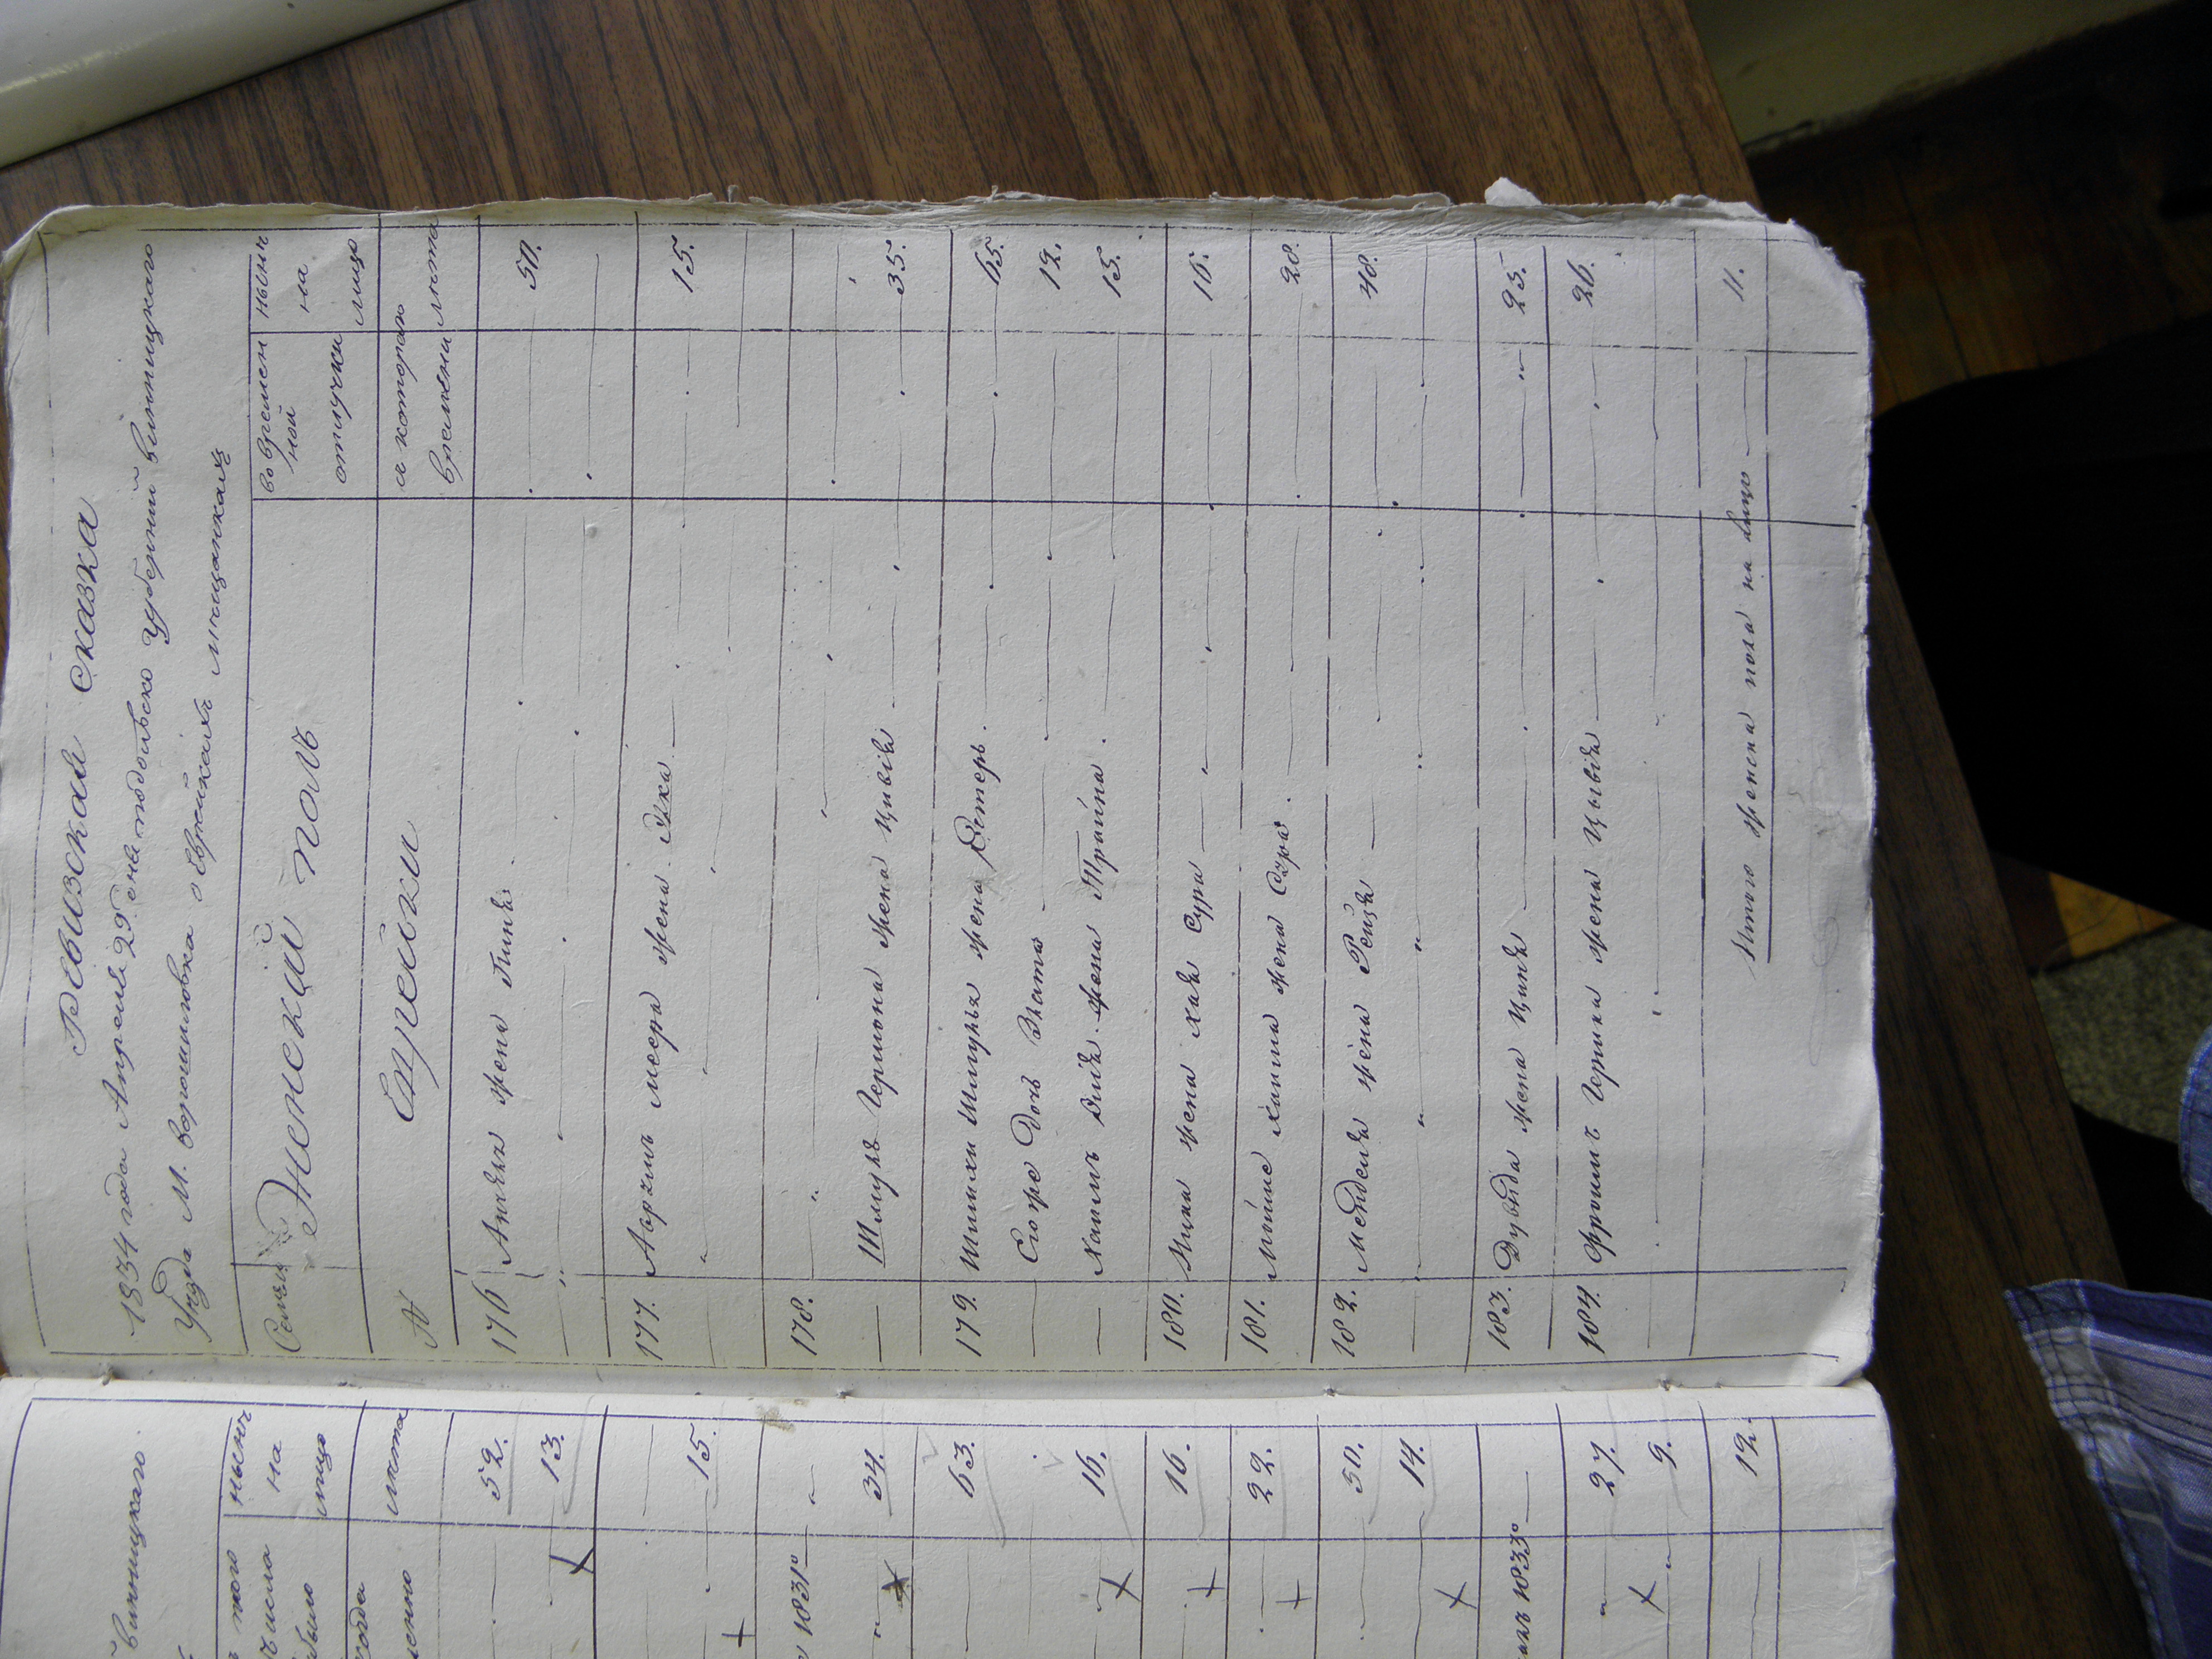 Ревизская сказка
1834 года Апреля 29 дня подольско губернии винницкого
Уезда М. ворошиловка о Еврейкахъ мещанкахъ
Семьи Женский полъ во времен ной отлучки нынѣ на лицо
№ Еврейки съ котораго времени лѣта
176 жена Пиня 50.
177. Меера жена 15.
178.
Шмуля Гершона жена Цивія 35.
179. Шмилихи Шмулья жена Естеръ. 65.
Его же Дочь Злата 12.
Хаимъ жена Трайна. 15.
180. жена Хая Сура 16.
181. Мойше Хаима жена Сура. 28.
182. Менделя жена Рейзя 48.
183. Дувыда жена Ципя 25.
184. Фроимъ Гершка жена Цывія 26.
Итого женска пола на лицо 11.
винницкого.
того числа было нынѣ на лицо
года лѣта
52.
13.
15.
1831º
34.
63.
16.
16.
22.
50.
14.
1833º
27.
9.
12.